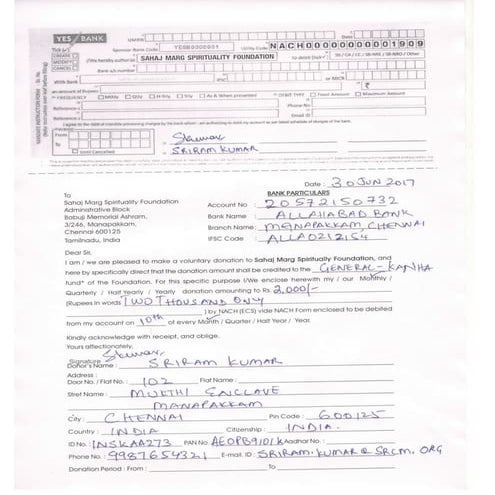 YES BANK
UMRN
Date
Tick (✓)
CREATE
MODIFY
CANCEL
Sponsor Bank Code YESB0000001 Utility Code NACH00000000000001909
I/We hereby authorize SAHAJ MARG SPIRITUALITY FOUNDATION to debit (tick✓)
Bank a/c number
With Bank IFSC or MICR
an amount of Rupees ₹
FREQUENCY Mthly Qtly H-Yrly Yrly As & When presented DEBIT TYPE Fixed Amount Maximum Amount
Reference 1 Phone No.
Reference 2 Email ID
PERIOD
From
To
Until Cancelled
SRIRAM KUMAR
Date : 30 JUN 2017
To
Sahaj Marg Spirituality Foundation
Administrative Block
Babuji Memorial Ashram,
3/246, Manapakkam,
Chennai 600125
Tamilnadu, India
BANK PARTICULARS
Account No : 20572150732
Bank Name : ALLAHABAD BANK
Branch Name : MANAPAKKAM, CHENNAI
IFSC Code : ALLA0212154
Dear Sir,
I am / we are pleased to make a voluntary donation to Sahaj Marg Spirituality Foundation, and
here by specifically direct that the donation amount shall be credited to the GENERAL - KANHA
fund* of the Foundation. For this specific purpose I/We enclose herewith my / our Monthly /
Quarterly / Half Yearly / Yearly donation amounting to Rs 2,000/-
(Rupees in words TWO THOUSAND ONLY
) by NACH (ECS) vide NACH Form enclosed to be debited
from my account on 10th of every Month / Quarter / Half Year / Year.
Kindly acknowledge with receipt, and oblige.
Yours affectionately,
Signature
Donor's Name : SRIRAM KUMAR
Address :
Door No. / Flat No. : 102 Flat Name :
Stret Name : MUKTHI ENCLAVE
MANAPAKKAM
City : CHENNAI Pin Code : 600125
Country : INDIA Citizenship : INDIA.
ID No.: INSKAA273 PAN No. AEOPB9101K Aadhar No.:
Phone No. : 9987654321 E-mail. ID : SRIRAM.KUMAR@SRCM.ORG
Donation Period : From To